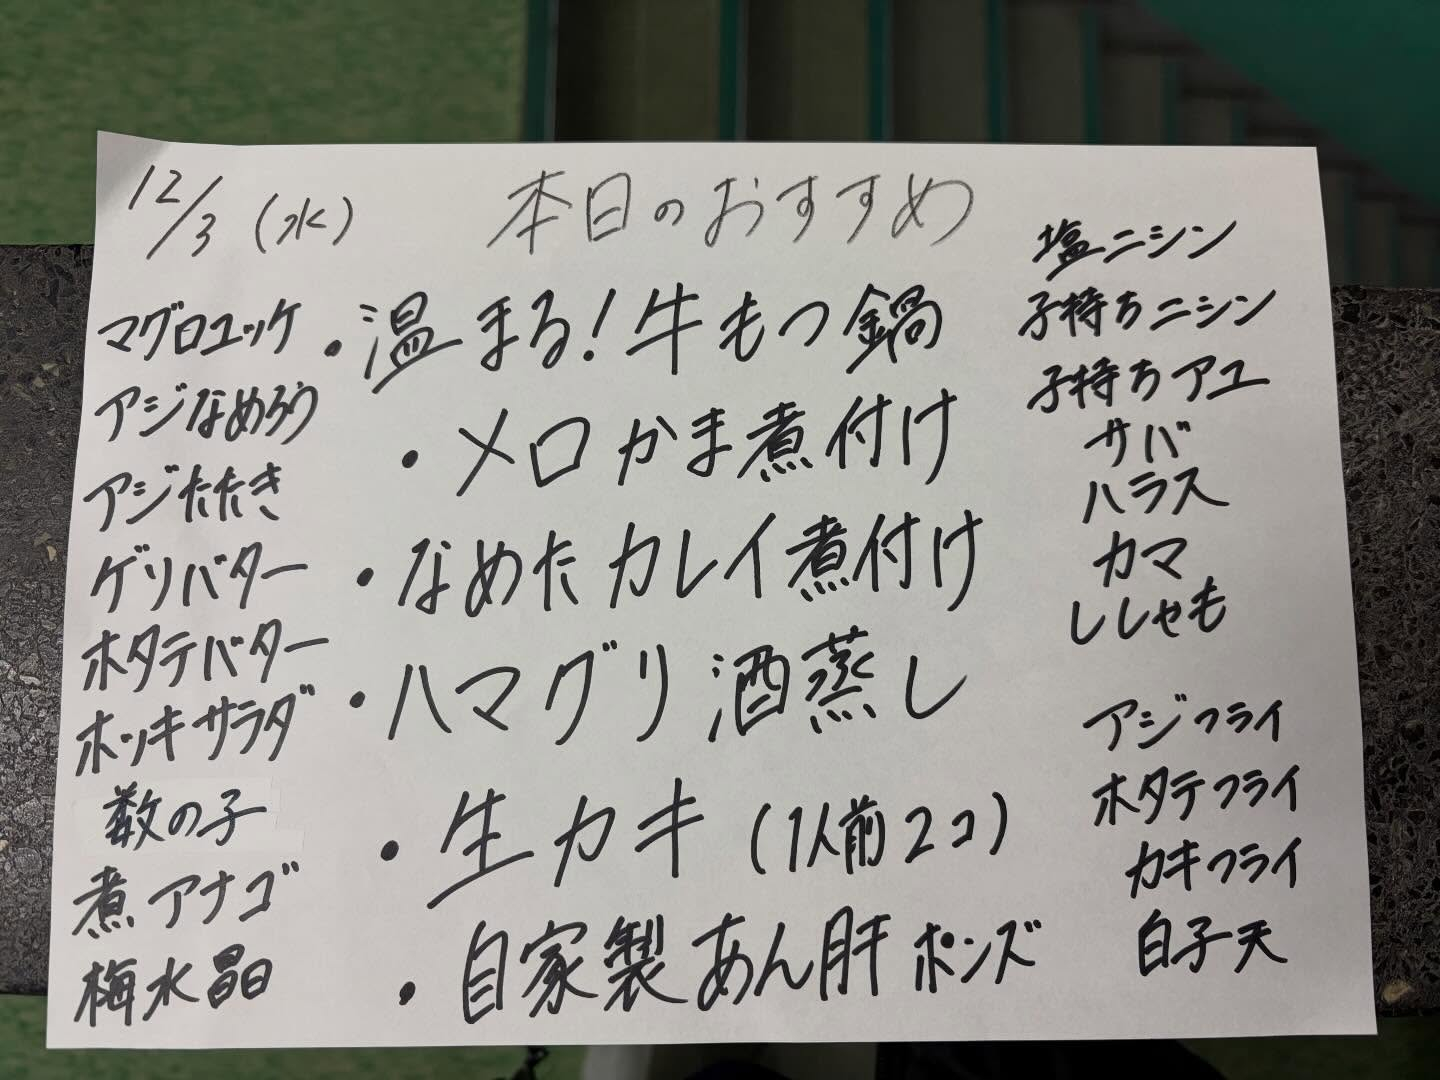 12/3 (水)
本日のおすすめ
マグロユッケ
アジなめろう
アジたたき
ゲソバター
ホタテバター
ホッキサラダ
数の子
煮アナゴ
梅水晶
・温まる!牛もつ鍋
・メロかま煮付け
・なめたカレイ煮付け
・ハマグリ酒蒸し
・生カキ(1人前2コ)
・自家製あん肝ポンズ
塩ニシン
子持ちニシン
子持ちアユ
サバ
ハラス
カマ
ししゃも
アジフライ
ホタテフライ
カキフライ
白子天